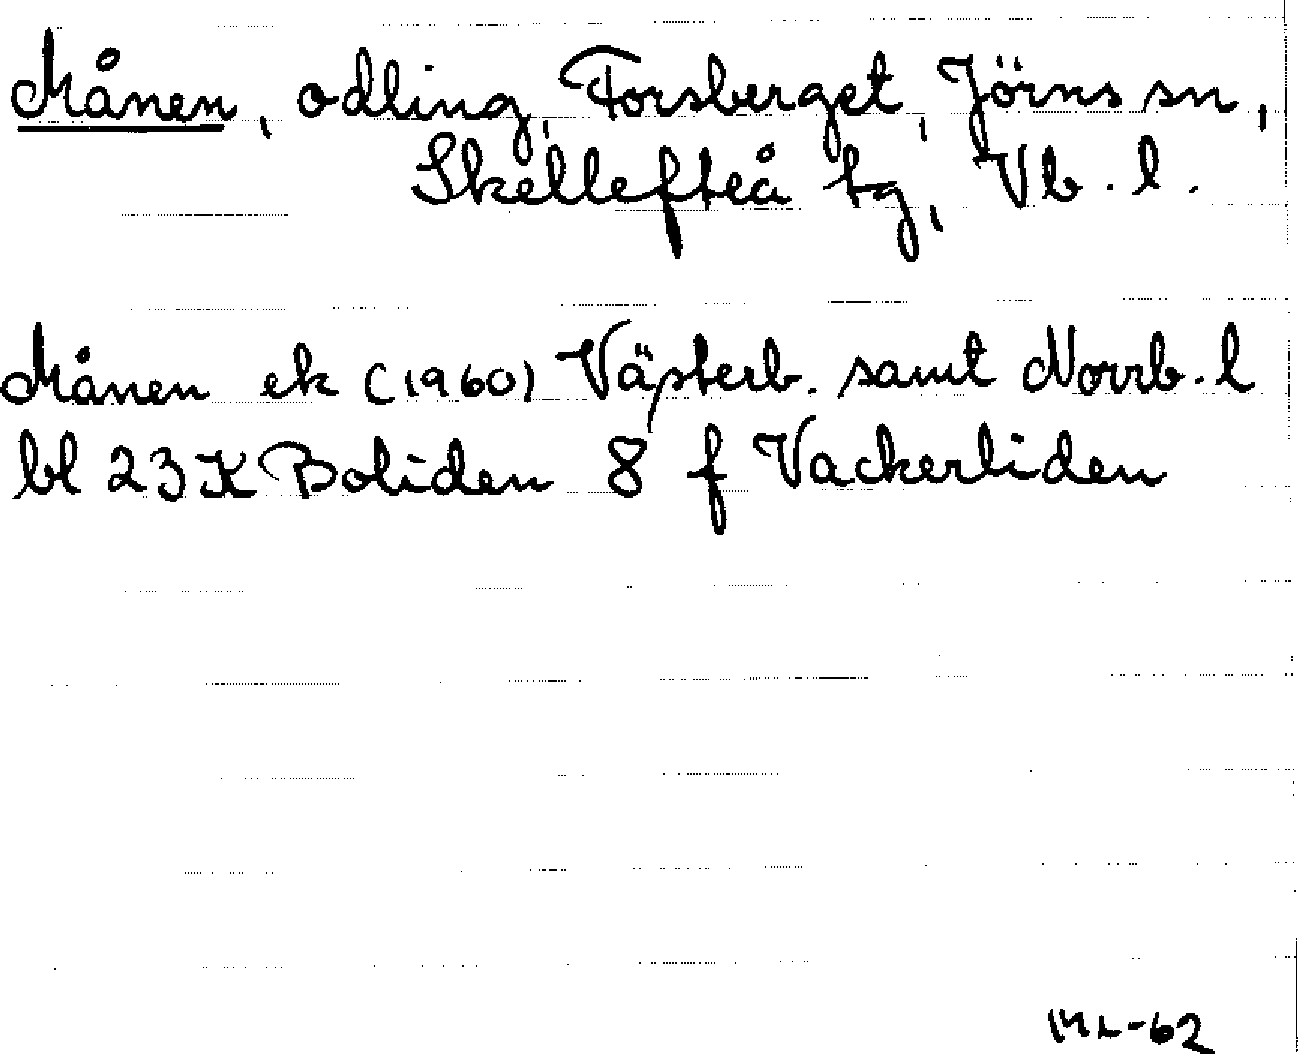 Månen, odling, Forsberget, Jörns sn,
Skellefteå tg, Vb. l.
Månen ek (1960) Västerb. samt Norrb. l
bl 23 K Boliden 8 f Vackerliden
ML-62